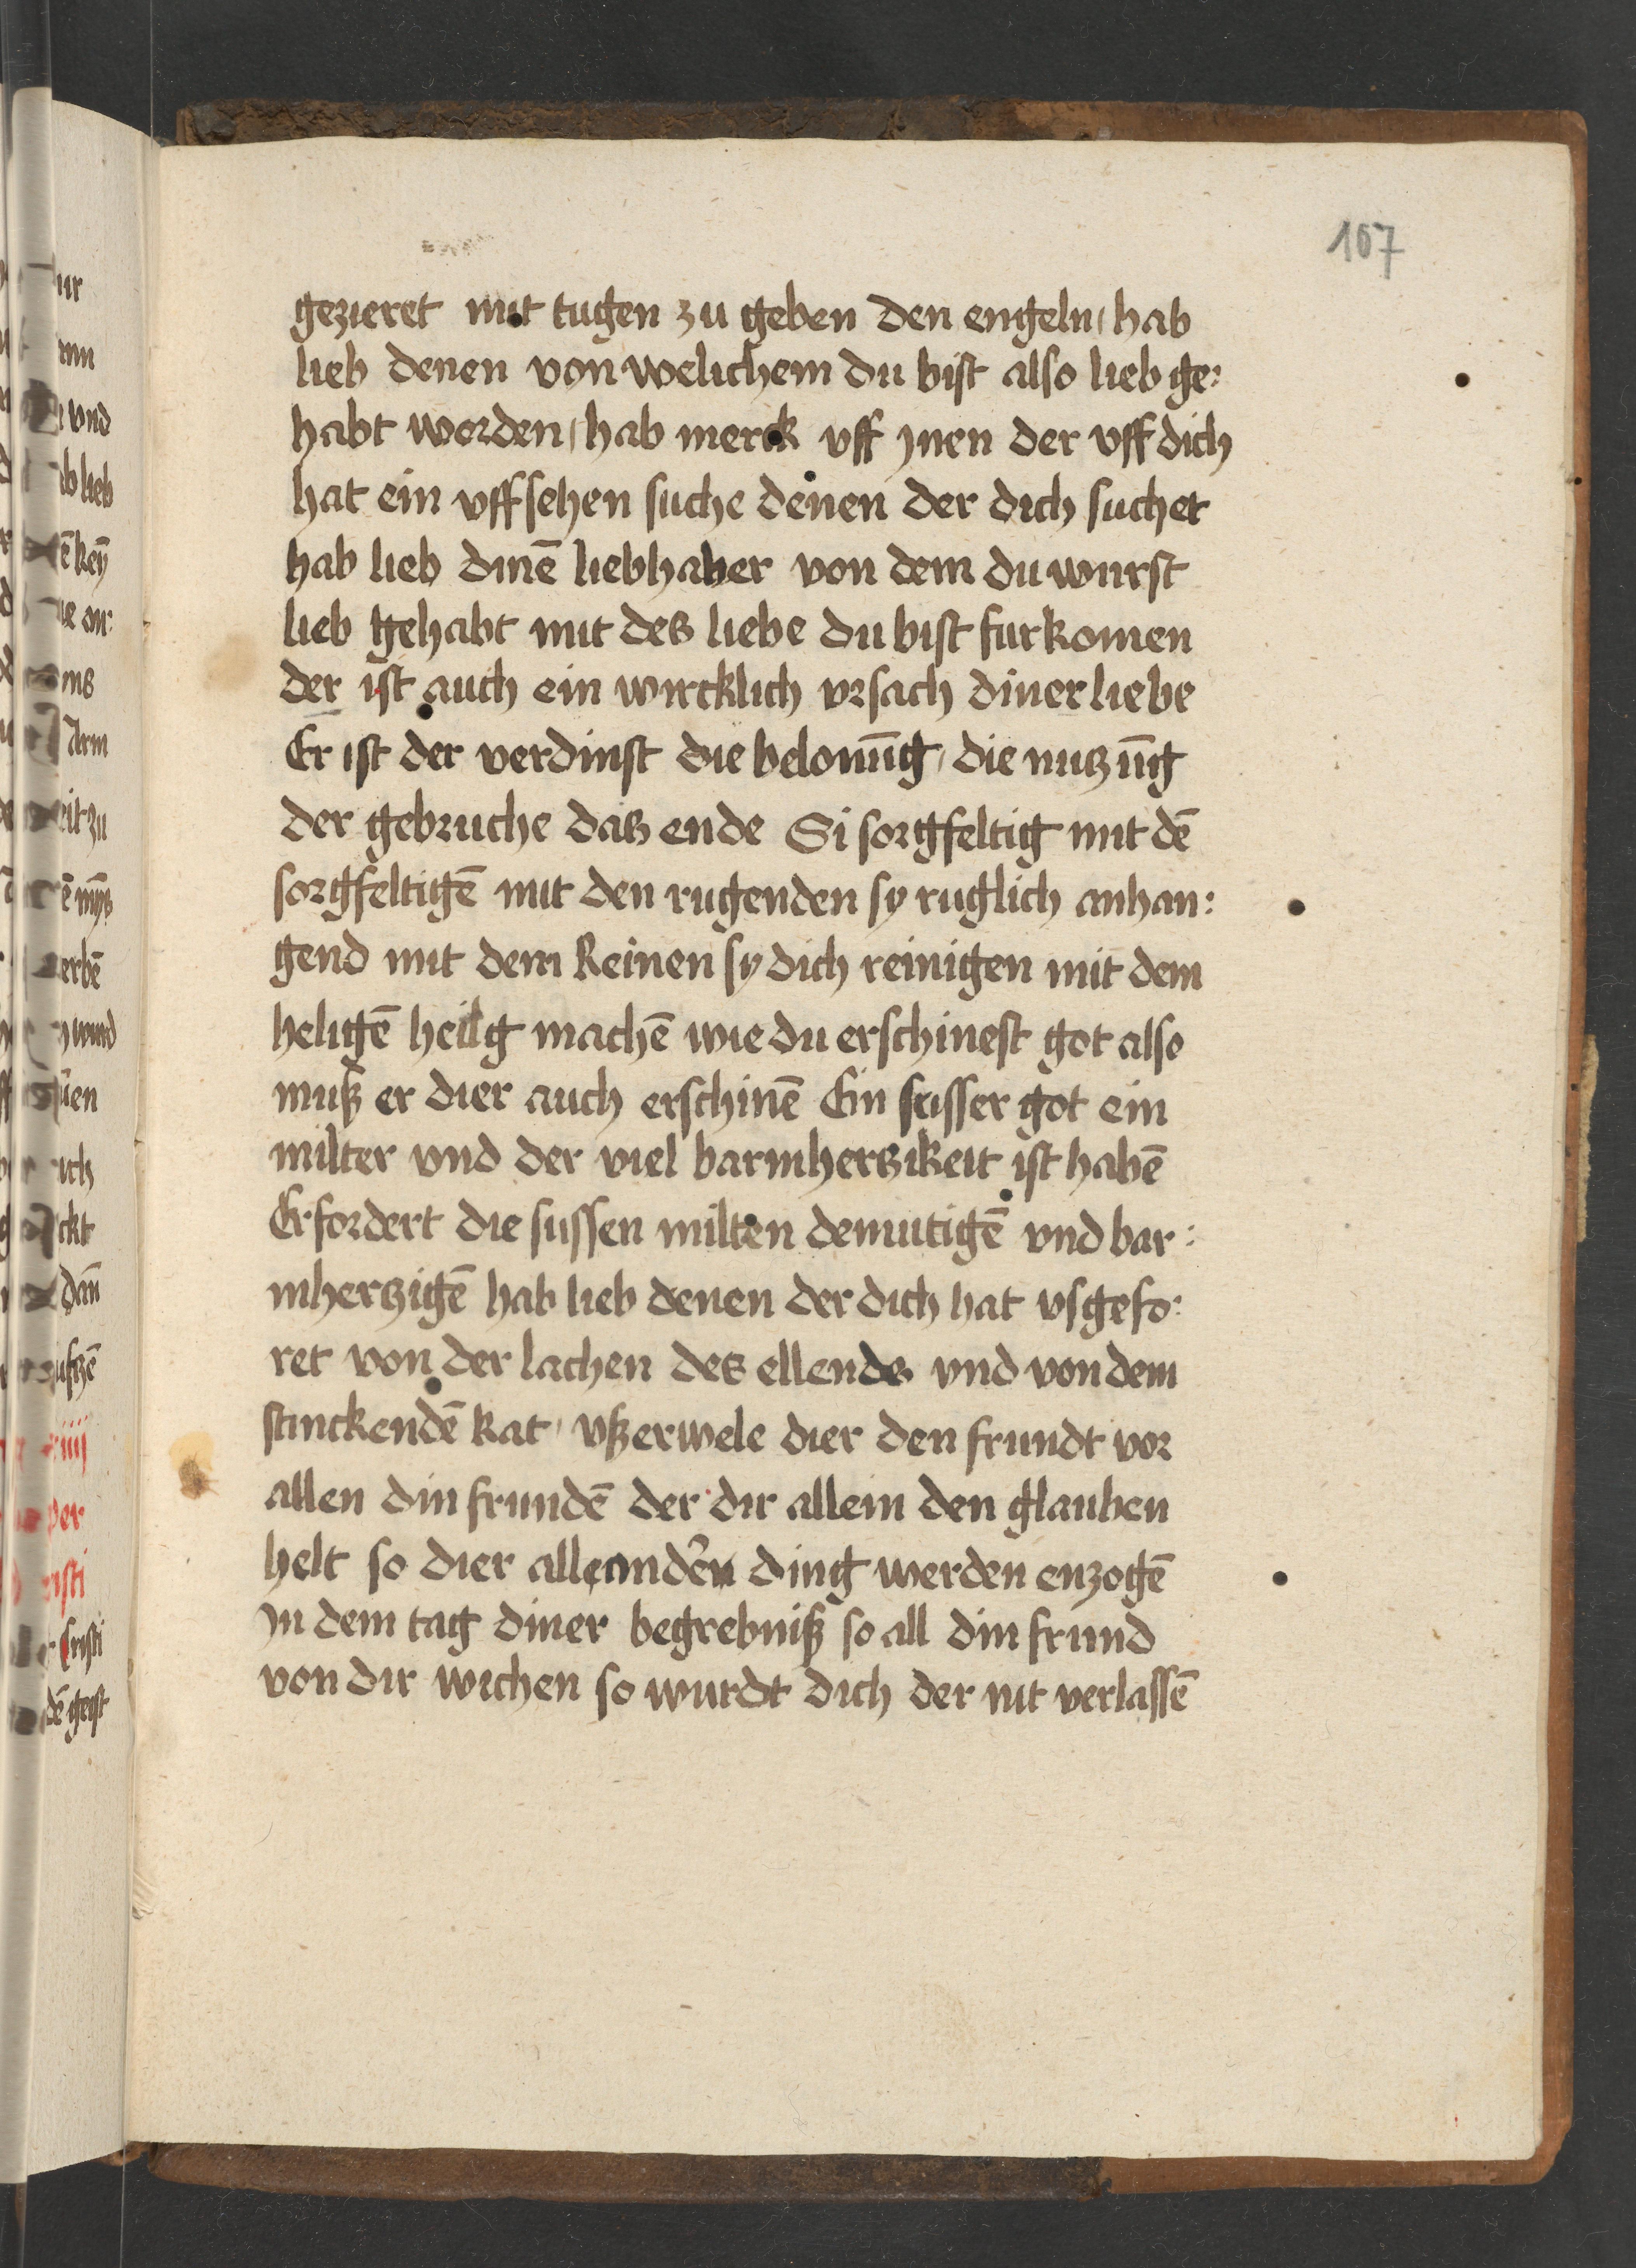 107
gezieret mit tugen zu geben den engeln / hab
lieb denen von welichem du bist also lieb ge:
habt worden / hab merck vff jnen der vff dich
hat ein vffsehen suche denen der dich suchet
hab lieb dinē liebhaber von dem du wurst
lieb gehabt mit des liebe du bist furkomen
der ist auch ein wircklich vrsach diner liebe
Er ist der verdinst die belonūg / die nutzūg
der gebruche das ende Si sorgfeltig mit dē
sorgfeltigē mit den rugenden sy ruglich anhan:
gend mit dem Reinen sy dich reinigen mit dem
heligē heilg machē wie du erschinest got also
muß er dier auch erschinē Ein susser got ein
milter vnd der viel barmhertzikeit ist habē
Erfordert die sussen milten demutigē vnd bar:
mhertzigē hab lieb denen der dich hat vsgefo:
ret von der lachen des ellends vnd von dem
stinckendē kat / vßerwele dier den frundt vor
allen din frundē der dir allein den glauben
helt so dier alle andern ding werden enzogē
jn dem tag diner begrebniß so all din frund
von dir wichen so wurdt dich der nit verlassē